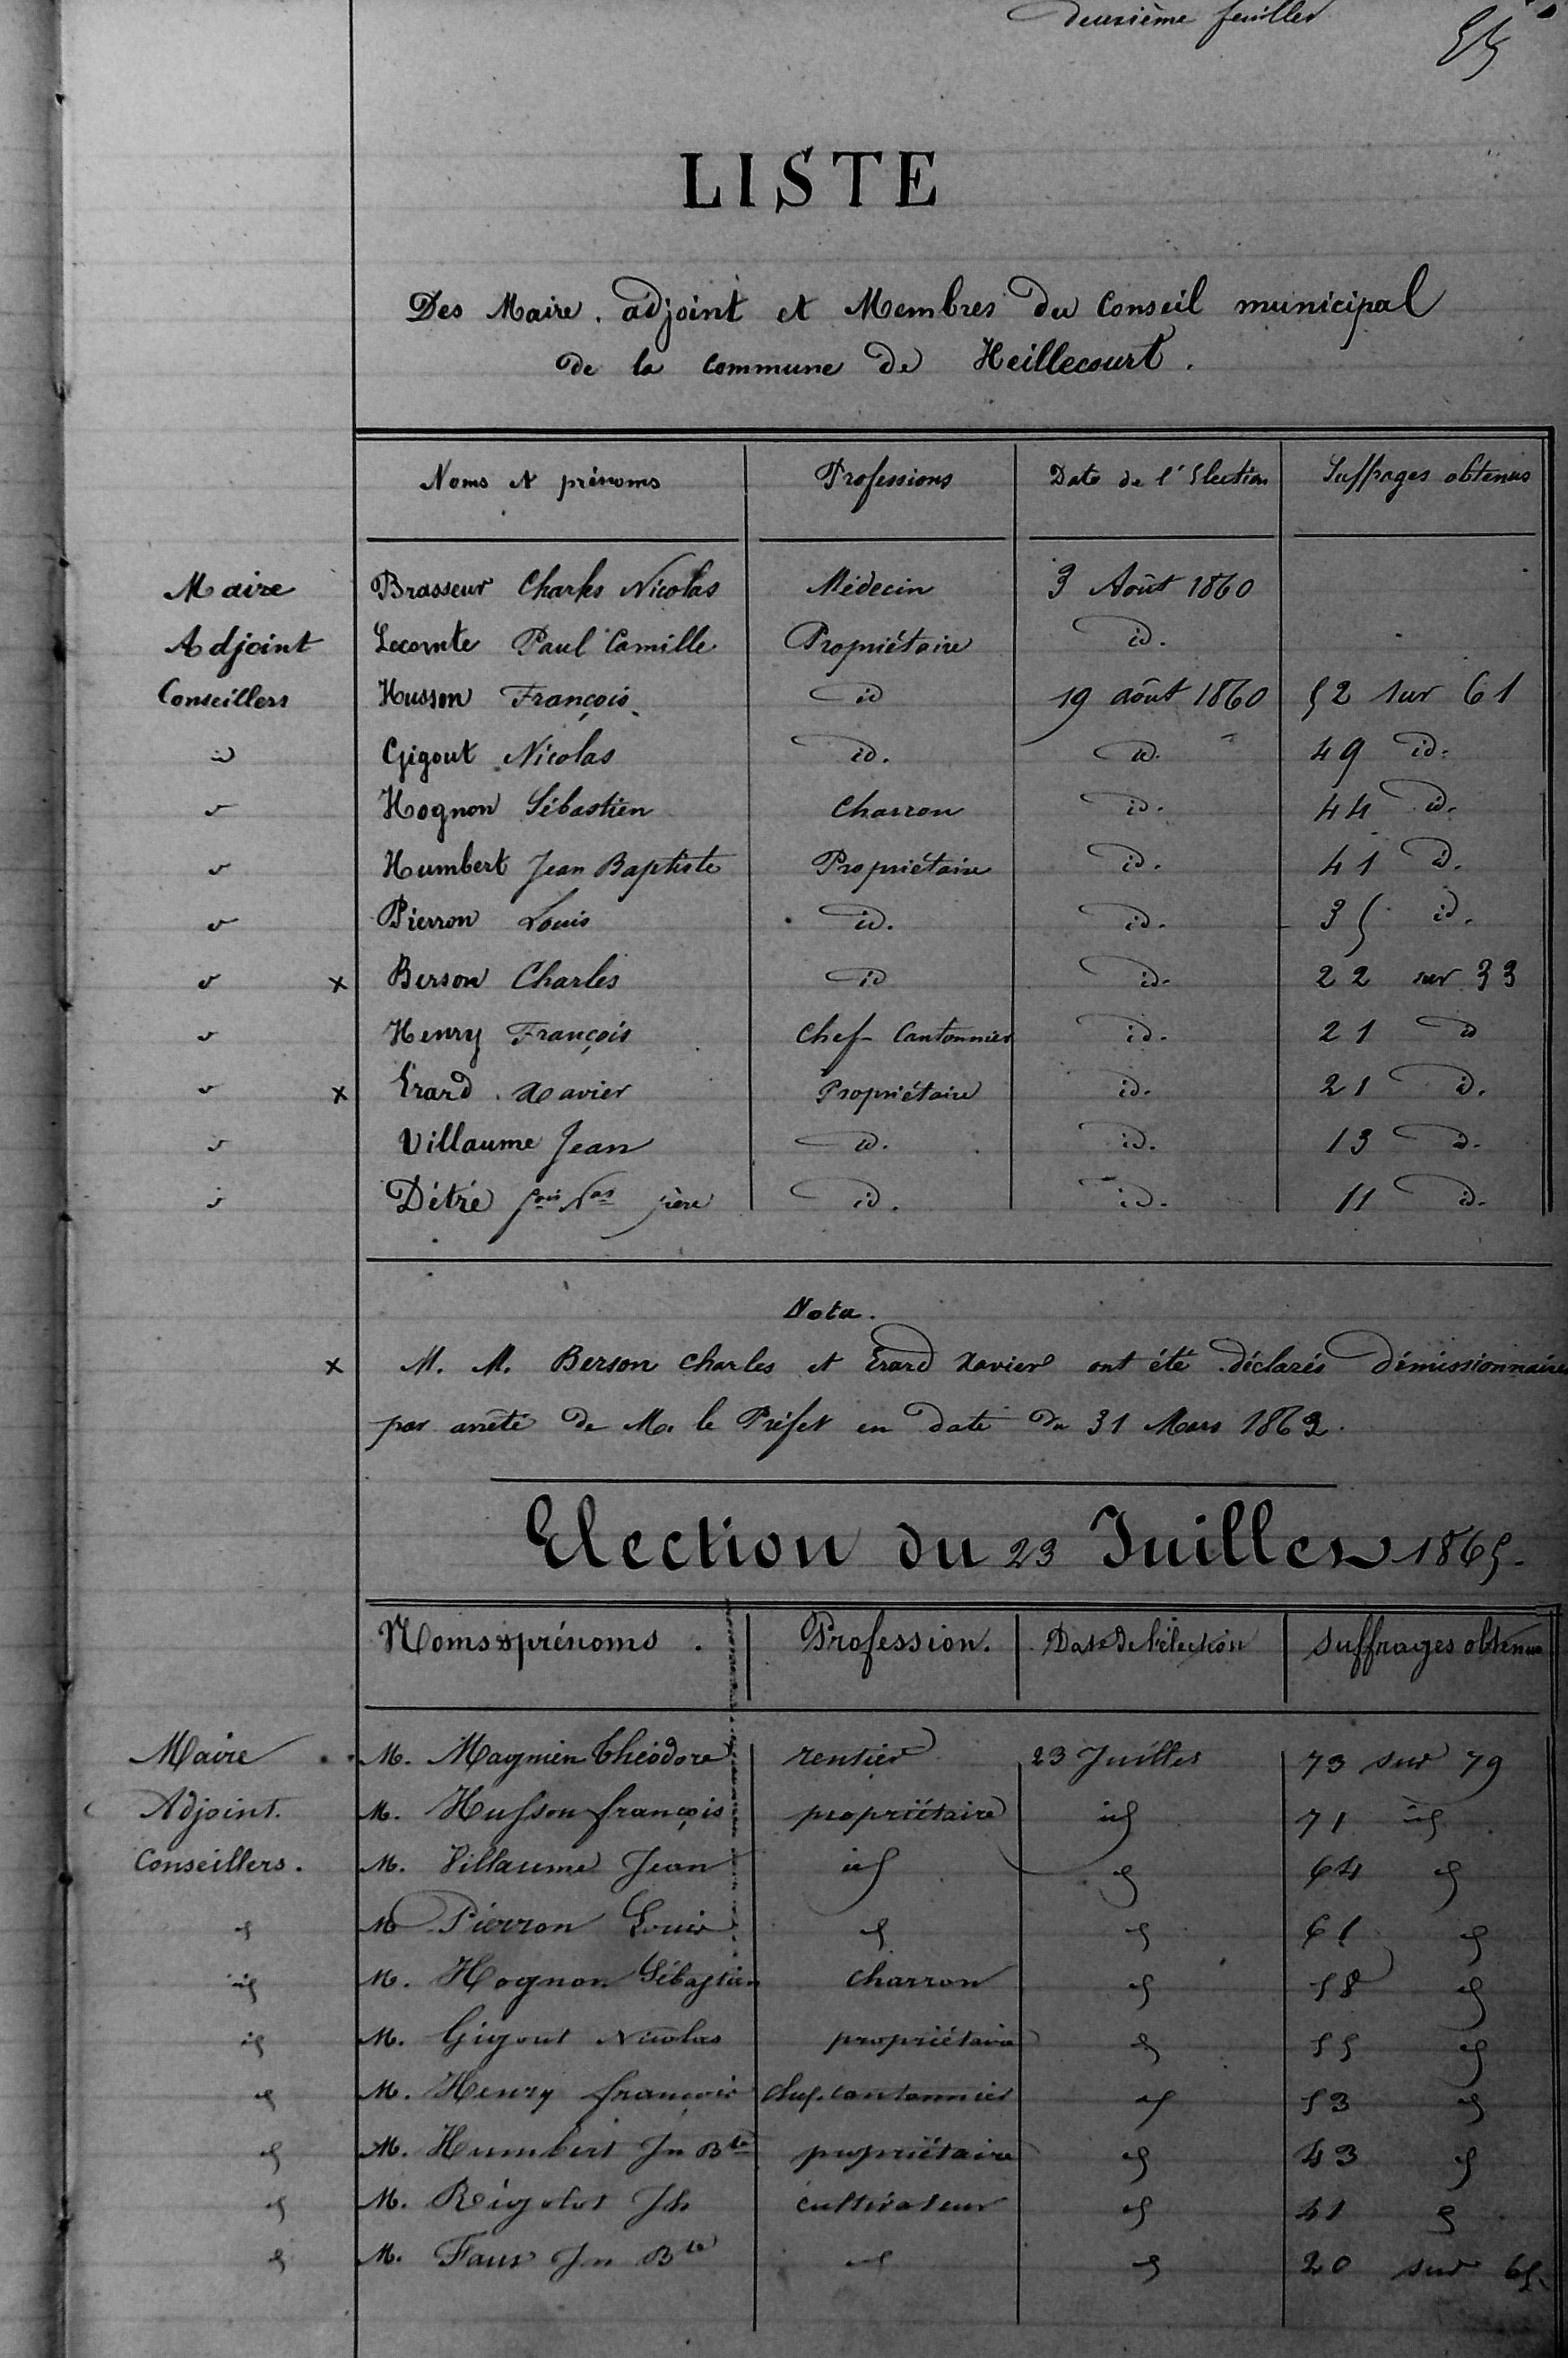 deuxième feuillet
LISTE
Des Maire, adjoint et Membres du Conseil municipal
de la commune de Heillecourt.
Noms et prénoms Professions Date de l'Election Suffrages obtenus
Maire Brasseur Charles Nicolas Médecin 3 Août 1860
Adjoint Lecomte Paul Camille Propriétaire id.
Conseillers Husson François id 19 août 1860 52 sur 61
id Gigout Nicolas id. id. 49 id.
id Hognon Sébastien Charron id. 44 id.
id Humbert Jean Baptiste Propriétaire id. 41 id.
id Pierron Louis id. id. 35 id.
id x Berson Charles id id. 22 sur 33
id Henry François Chef Cantonnier id. 21 id
id x Erard Xavier Propriétaire id. 21 id.
id Villaume Jean id. id. 13 id.
id Détré fçois Nas père id. id. 11 id.
Nota.
x M. M. Berson Charles et Erard Xavier ont été déclarés démissionnaires
par arrêté de M. le Préfet en date du 31 Mars 1862.
Election du 23 Juillet 1865.
Noms & prénoms. Profession. Date de l'élection Suffrages obtenus
Maire M. Maymien Théodore rentier 23 Juillet 73 sur 79
Adjoint. M. Husson françois propriétaire id 71 id
Conseillers. M. Villaume Jean id id 64 id
id M Pierron Louis id id 61 id
id M. Hognon Sébastien charron id 58 id
id M. Gigout Nicolas propriétaire id 55 id
id M. Henry françois chef.cantonnier id 53 id
id M. Humbert Jn Bte propriétaire id 43 id
id M. Rigolot Jh cultivateur id 41 id
id M. Faux Jn Bte id id 20 sur 65.